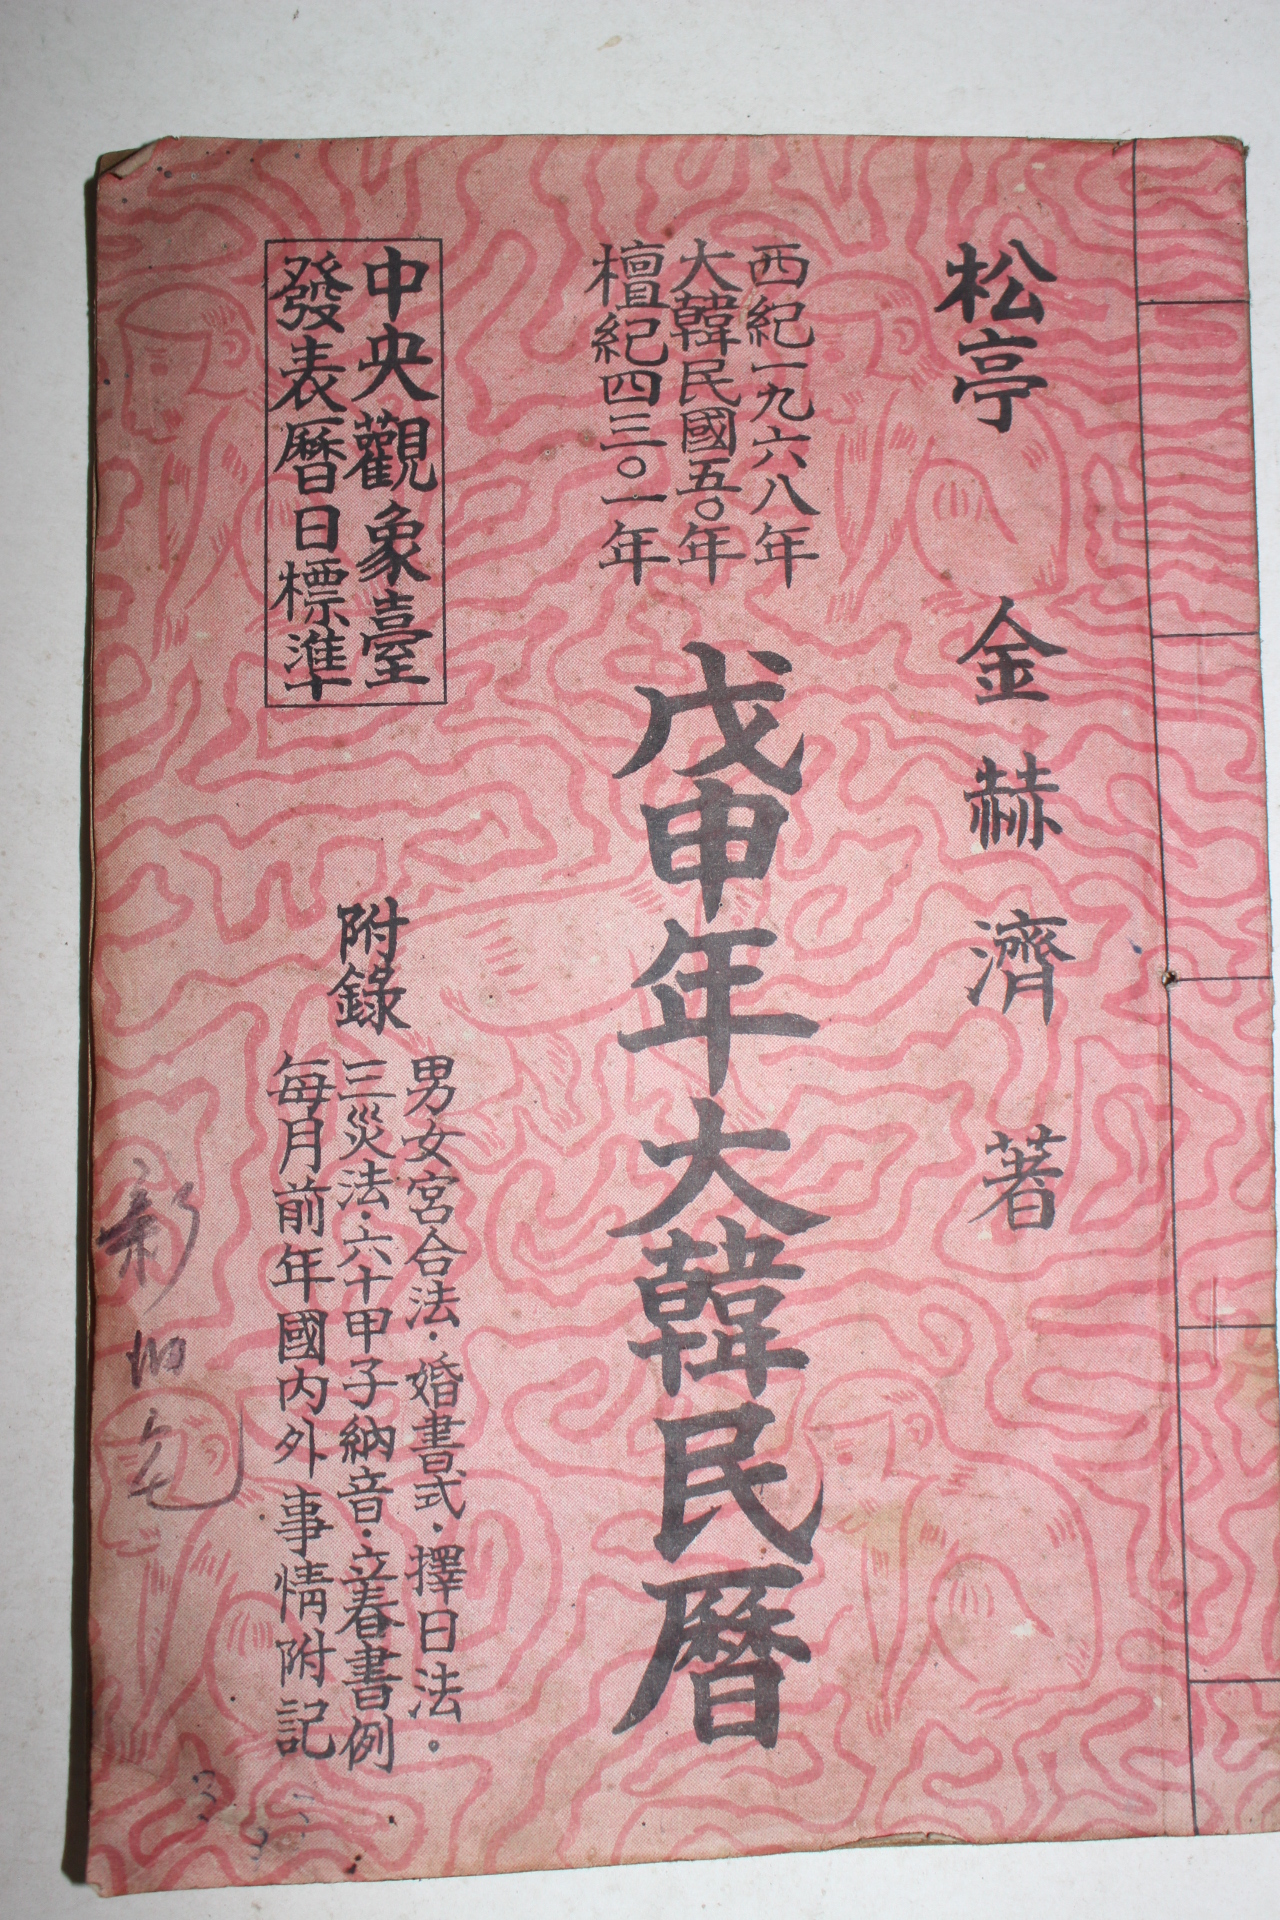 松亭 金赫濟 著
西紀一九六八年
大韓民國五○年
檀紀四三○一年
戊申年大韓民曆
中央觀象臺
發表曆日標準
附錄
男女宮合法·婚書式·擇日法·
三災法·六十甲子納音·立春書例
每月前年國內外事情附記